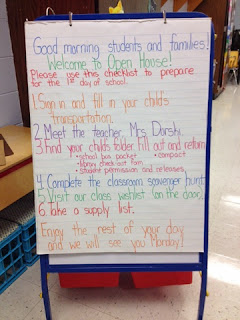 Good morning students and families!
Welcome to Open House!
Please use this checklist to prepare
for the 1st day of school.
1. Sign in and fill in your child's
transportation.
2. Meet the teacher, Mrs. Dorsky.
3. Find your child's folder, fill out and return
• school bus packet • compact
• library check-out form
• student permission and releases
4. Complete the classroom scavenger hunt
5. Visit our class wishlist (on the door)
6. Take a supply list.
Enjoy the rest of your day
and we will see you Monday!